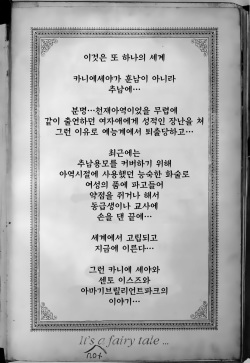 이것은 또 하나의 세계
카니에세야가 훈남이 아니라
추남에…
분명…천재아역이었을 무렵에
같이 출연하던 여자애에게 성적인 장난을 쳐
그런 이유로 예능계에서 퇴출당하고…
최근에는
추남용모를 커버하기 위해
아역시절에 사용했던 능숙한 화술로
여성의 품에 파고들어
약점을 쥐거나 해서
동급생이나 교사에
손을 댄 끝에…
세계에서 고립되고
지금에 이른다…
그런 카니에 세야와
센토 이스즈와
아마기브릴리언트파크의
이야기…
It's a fairy tale ...
not